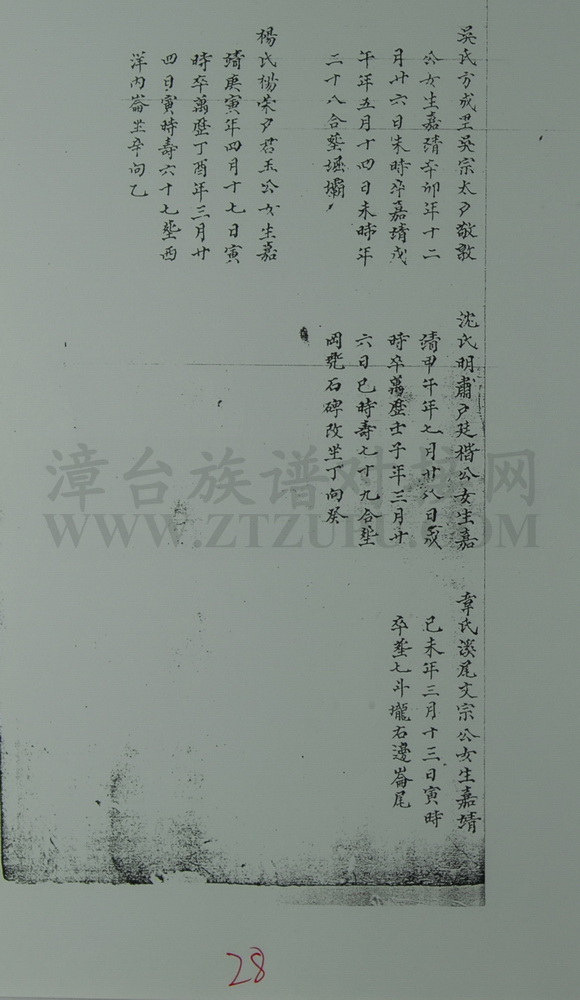 吳氏方成里吳宗太户敬敦
公女生嘉靖辛卯年十二
月廿六日未時卒嘉靖戊
午年五月十四日未時年
二十八合塟堀壩
楊氏楊榮户君玉公女生嘉
靖庚寅年四月十七日寅
時卒萬歷丁酉年三月廿
四日寅時壽六十七塟西
洋內崙坐辛向乙
沈氏明肅户廷楷公女生嘉
靖甲午年七月廿八日戌
時卒萬歷壬子年三月廿
六日巳時壽七十九合塟
岡石碑改坐丁向癸
韋氏溪尾文宗公女生嘉靖
己未年三月十三日寅時
卒塟七斗壠右邊崙尾
漳台族谱对接网
WWW.ZTZUPU.COM
28